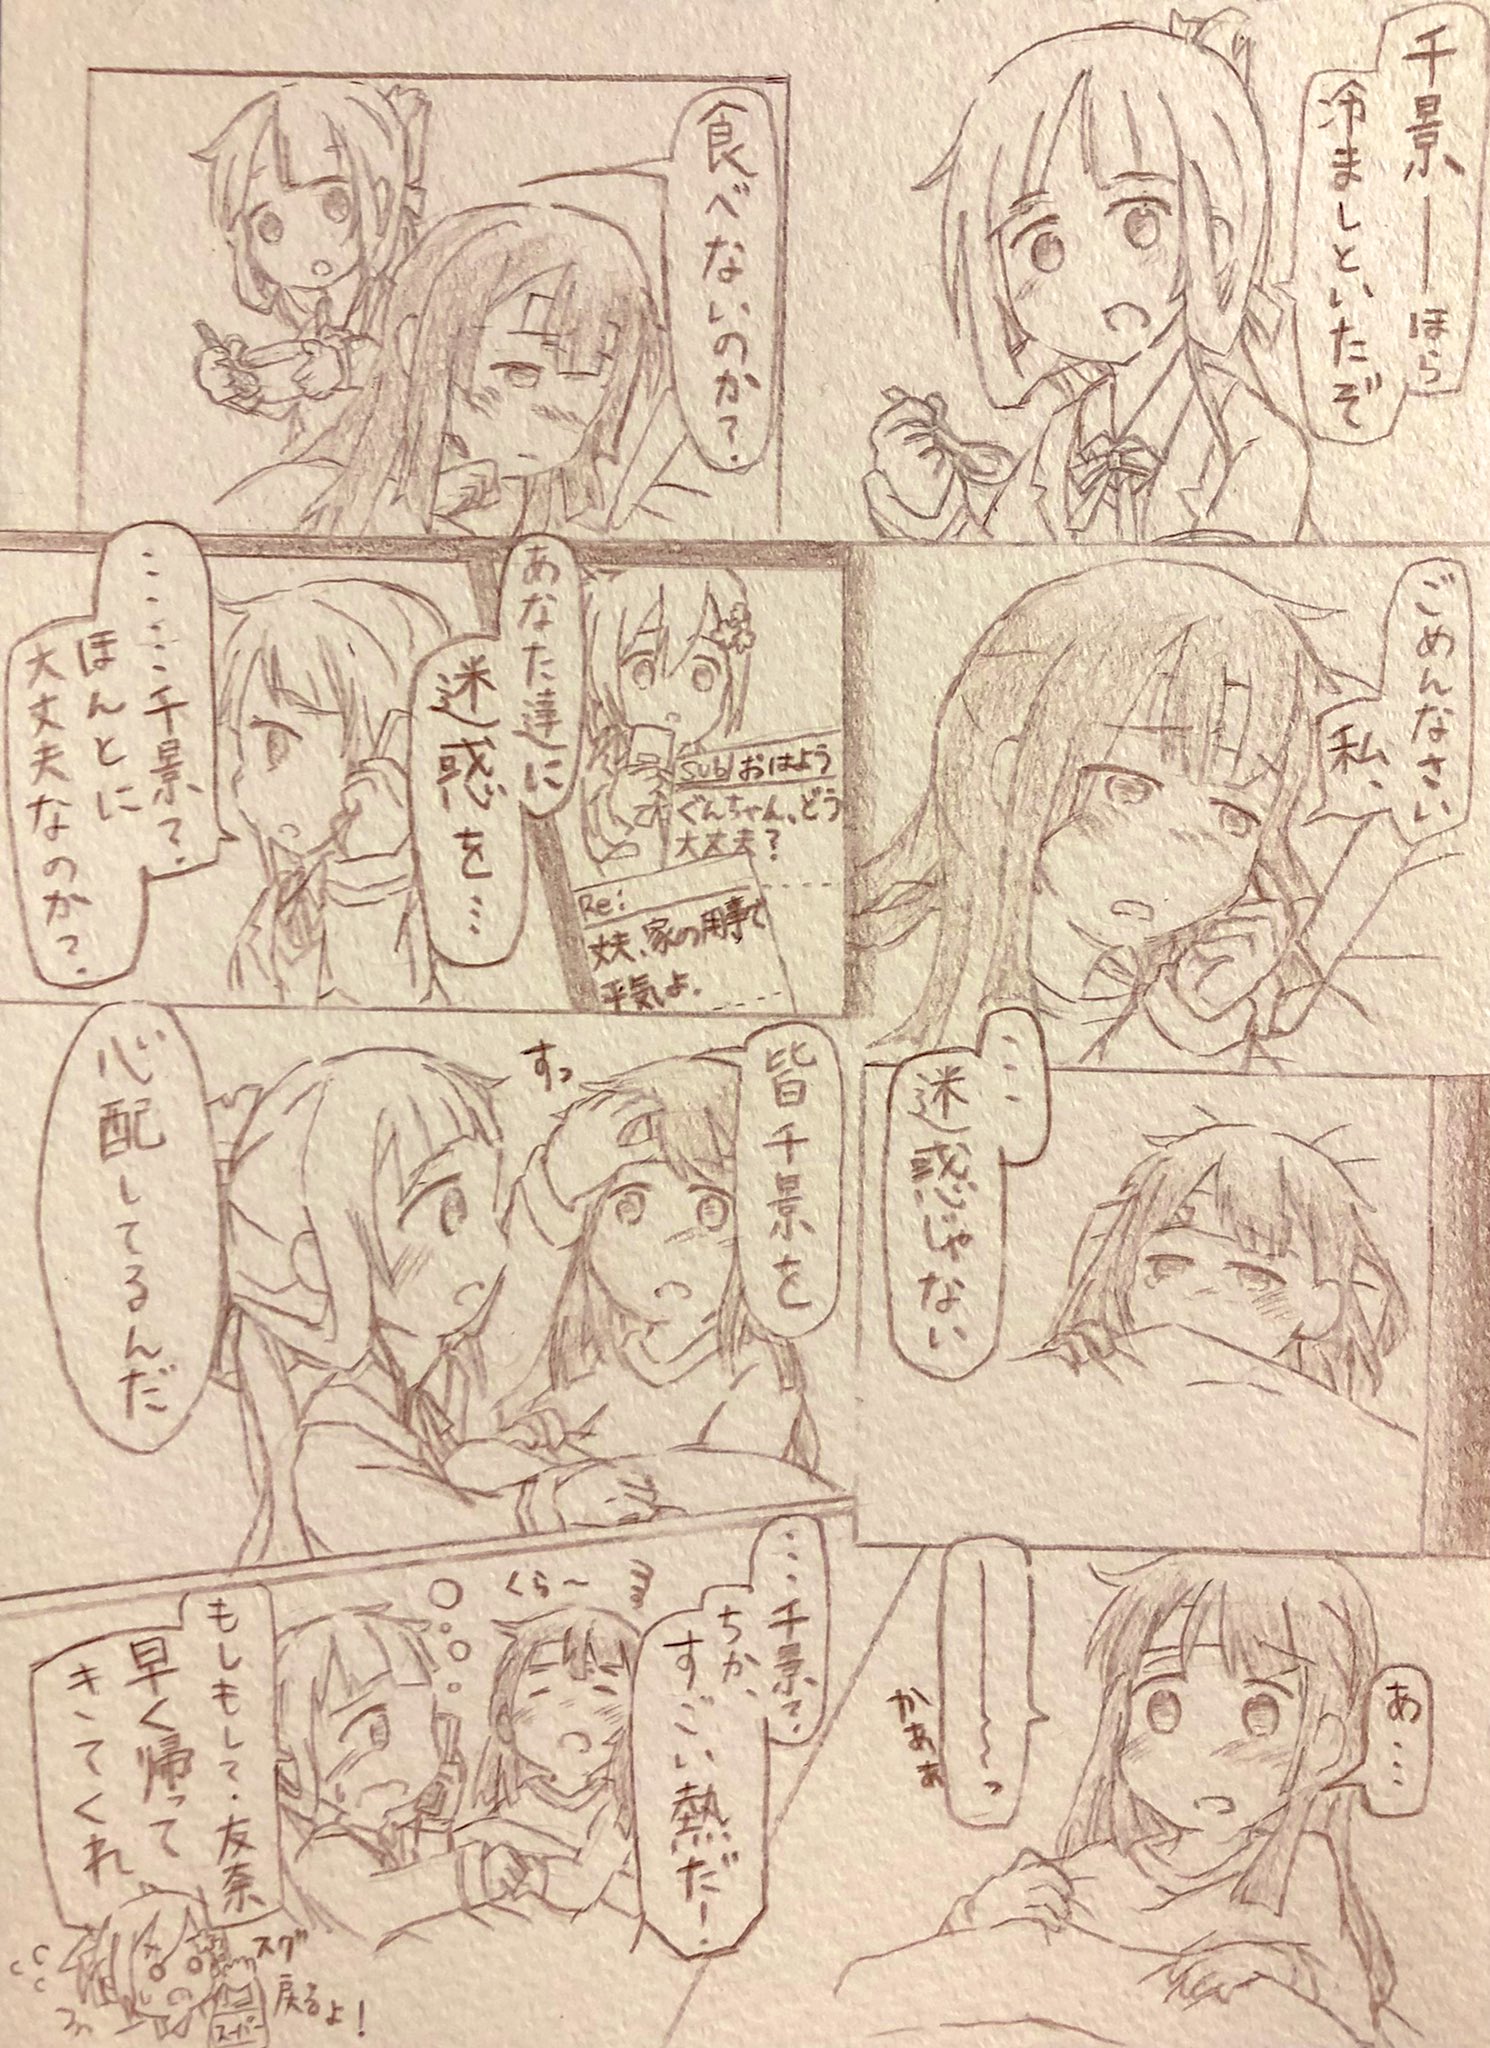 千景――ほら
冷ましといたぞ
食べないのか?
ごめんなさい
私、
sub/おはよう
ぐんちゃん、どう
大丈夫?
Re:
丈夫、家の用事で
平気よ。
あなた達に
迷惑を…
……千景?
ほんとに
大丈夫なのか?
…
迷惑じゃない
皆千景を
すっ
心配してるんだ
あ…
かぁぁ
…千景?
ちか、
すごい熱だ!
くら〜
もしもし?友奈
早く帰って
きてくれ
スグ
戻るよ!
スーパー